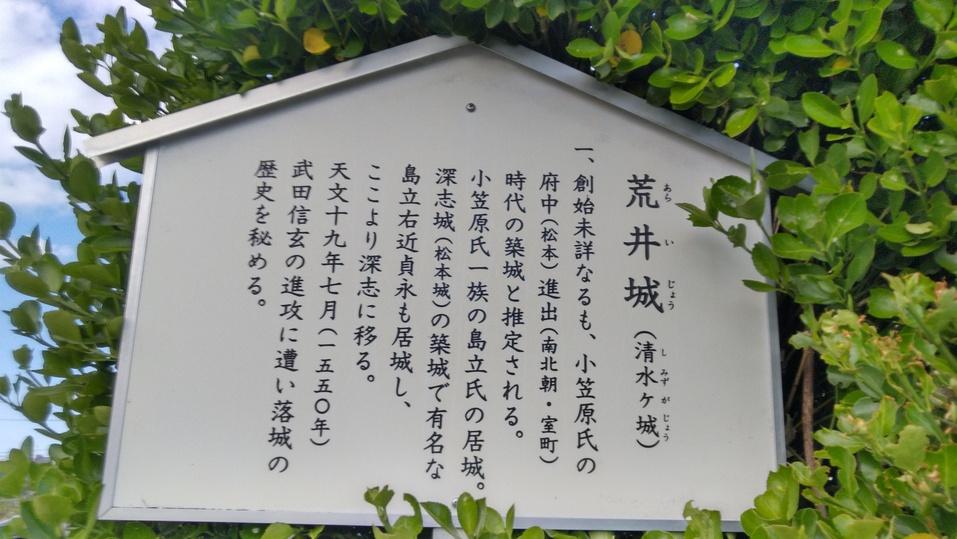 荒井城（清水ヶ城）
一、創始未詳なるも、小笠原氏の
府中（松本）進出（南北朝・室町）
時代の築城と推定される。
小笠原氏一族の島立氏の居城。
深志城（松本城）の築城で有名な
島立右近貞永も居城し、
ここより深志に移る。
天文十九年七月（一五五〇年）
武田信玄の進攻に遭い落城の
歴史を秘める。
あら い じょう
し みず が じょう